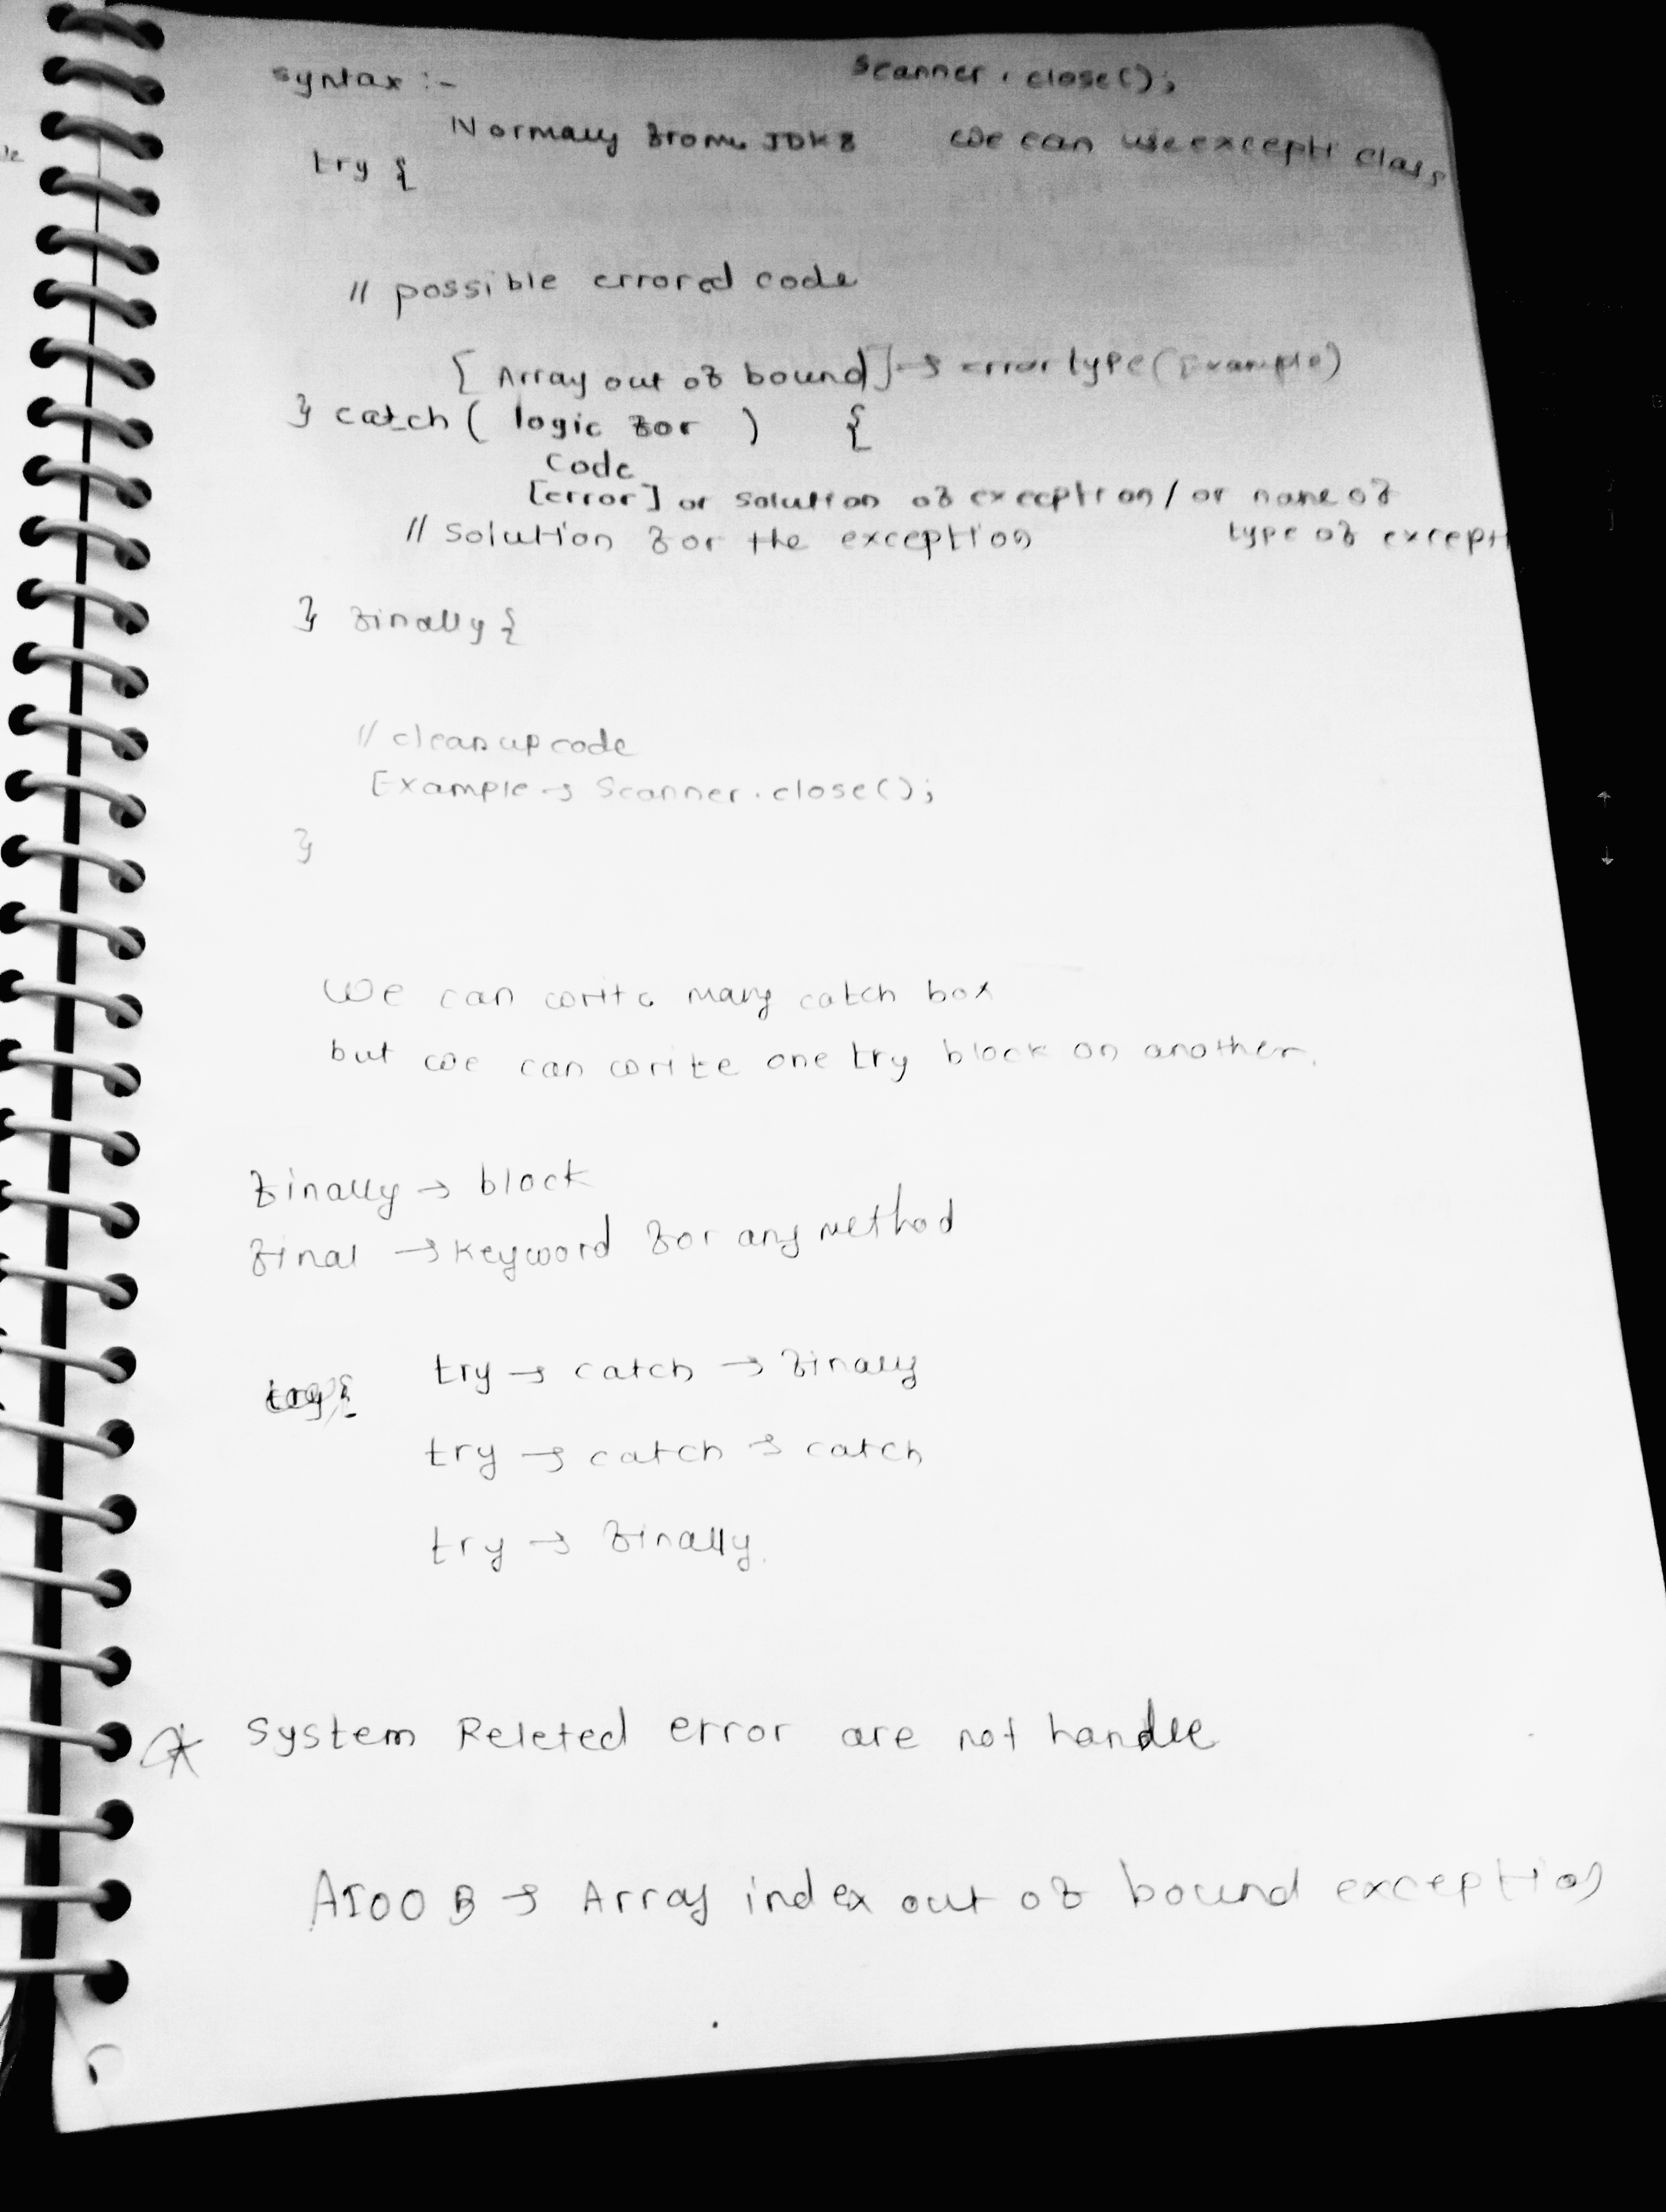 syntax :-
Scanner . close();
Normaly from JDK8 we can use excepti class
try {
// possible errored code
[ Array out of bound] → error type (Example)
} catch ( logic for ) {
code
[error] or solution of exception / or name of
// solution for the exception type of excepti
} finally {
// clean up code
Example → Scanner . close();
}
we can write many catch box
but we can write one try block on another.
finally → block
final → keyword for any method
try → catch → finally
try {
try → catch → catch
try → finally.
System Releted error are not handle
AIOOB → Array index out of bound exception